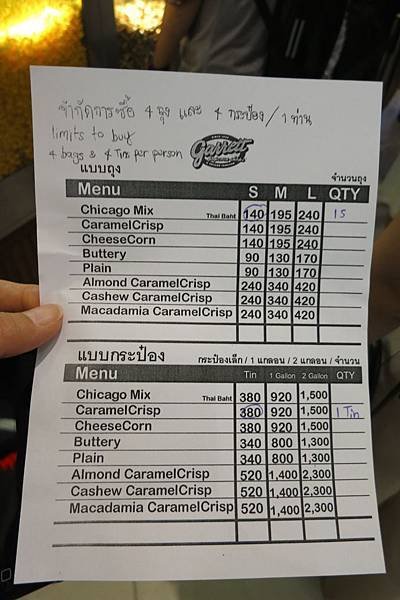 จำกัดการซื้อ 4 ถุง และ 4 กระป๋อง / 1 ท่าน
limits to buy
4 bags & 4 Tin per person
Garrett
แบบถุง
จำนวนถุง
Menu S M L QTY
Chicago Mix Thai Baht 140 195 240 1S
CaramelCrisp 140 195 240
CheeseCorn 140 195 240
Buttery 90 130 170
Plain 90 130 170
Almond CaramelCrisp 240 340 420
Cashew CaramelCrisp 240 340 420
Macadamia CaramelCrisp 240 340 420
แบบกระป๋อง กระป๋องเล็ก / 1 แกลอน / 2 แกลอน / จำนวน
Menu Tin 1 Gallon 2 Gallon QTY
Chicago Mix Thai Baht 380 920 1,500
CaramelCrisp 380 920 1,500 1 Tin
CheeseCorn 380 920 1,500
Buttery 340 800 1,300
Plain 340 800 1,300
Almond CaramelCrisp 520 1,400 2,300
Cashew CaramelCrisp 520 1,400 2,300
Macadamia CaramelCrisp 520 1,400 2,300